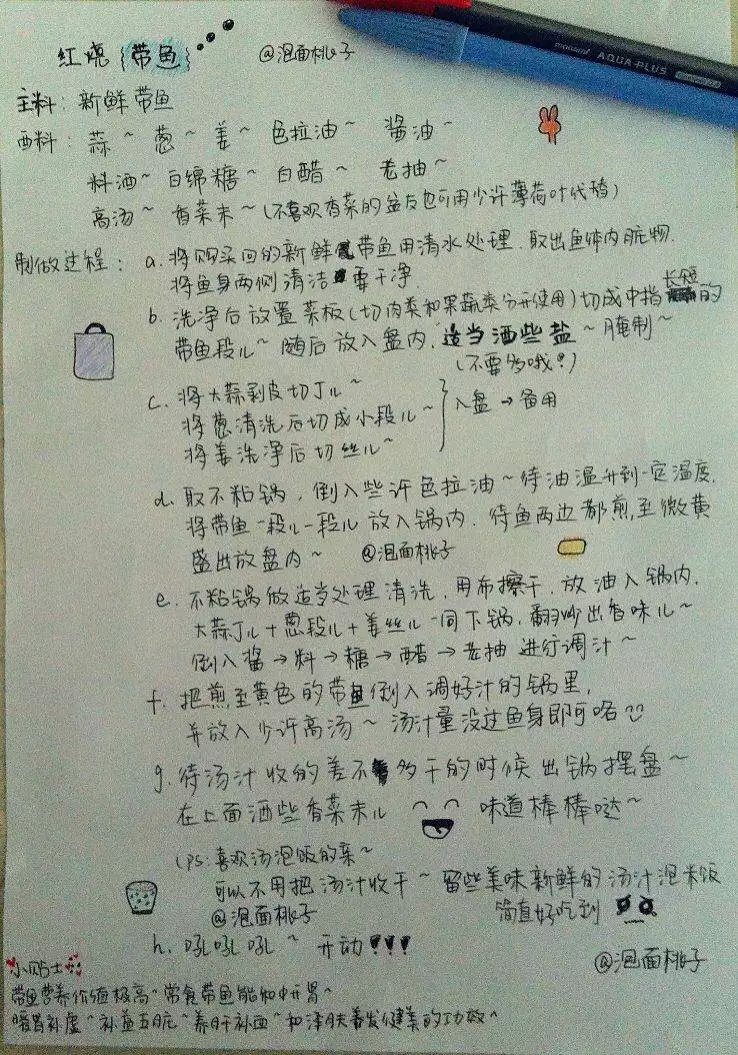 红烧{带鱼}
@泡面桃子
monami AQUA PLUS
主料：新鲜带鱼
西料：蒜~ 葱~ 姜~ 色拉油~ 酱油~
料酒~ 白绵糖~ 白醋~ 老抽~
高汤~ 香菜末~(不喜欢香菜的盆友也可用少许薄荷叶代替)
制做过程：a. 将购买回的新鲜带鱼用清水处理.取出鱼体内脏物.
将鱼身两侧清洁要干净.
b. 洗净后放置菜板(切肉类和果蔬类分开使用)切成中指长短的
带鱼段儿~ 随后放入盘内.适当洒些盐~腌制~
(不要多哦!)
c. 将大蒜剥皮切丁儿~
将葱清洗后切成小段儿~ 入盘→备用
将姜洗净后切丝儿~
d. 取不粘锅，倒入些许色拉油~待油温升到一定温度.
将带鱼一段儿一段儿放入锅内.待鱼两边都煎至微黄
盛出放盘内~ @泡面桃子
e. 不粘锅做适当处理清洗.用布擦干.放油入锅内.
大蒜丁儿+葱段儿+姜丝儿一同下锅,翻炒出香味儿~
倒入酱→料→糖→醋→老抽 进行调汁~
f. 把煎至黄色的带鱼倒入调好汁的锅里,
并放入少许高汤~ 汤汁量没过鱼身即可咯
g. 待汤汁收的差不多干的时候出锅摆盘~
在上面洒些香菜末儿 味道棒棒哒~
(PS:喜欢汤泡饭的亲~
可以不用把汤汁收干~ 留些美味新鲜的汤汁泡米饭
@泡面桃子 简直好吃到
h. 吼吼吼~ 开动!!!
@泡面桃子
小贴士
带鱼营养价值极高~常食带鱼能和中开胃~
暖胃补虚~补益五脏~养肝补血~和泽肤养发健美的功效~